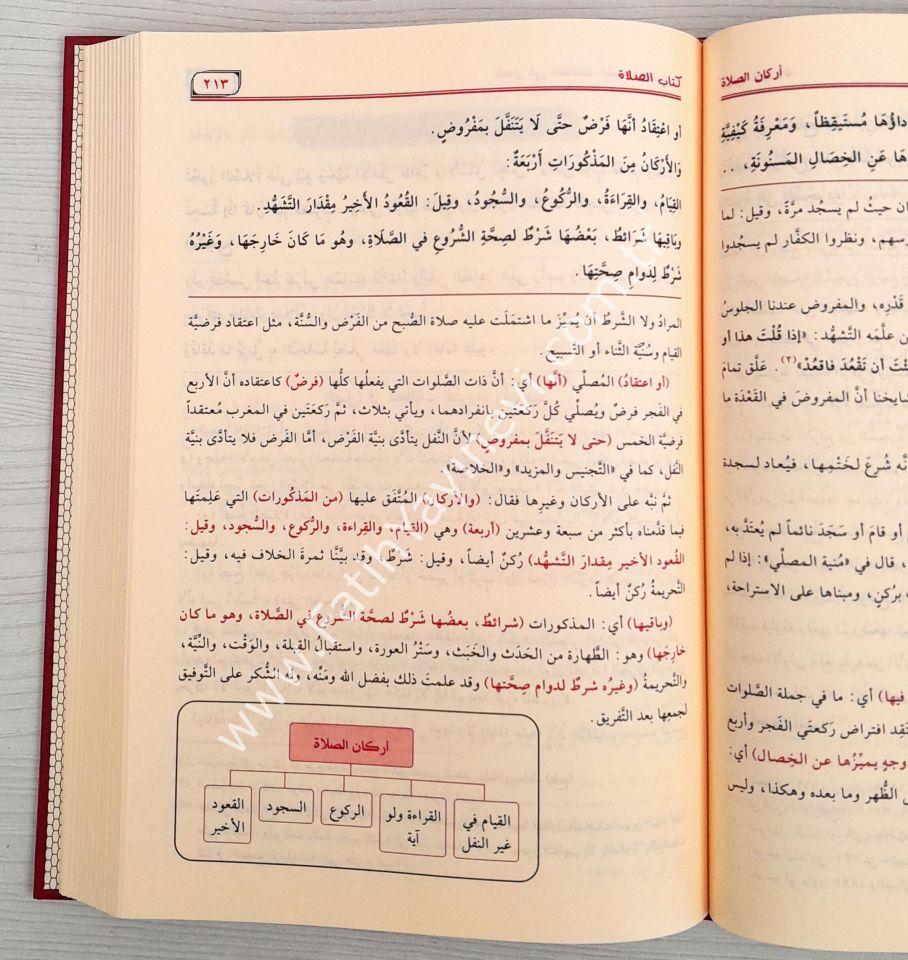 كتاب الصلاة
٢١٣
أو اعْتِقَادُ أنَّهَا فَرْضٌ حتَّى لَا يَتَنَفَّلَ بِمَفْرُوضٍ.
وَالأَرْكَانُ مِنَ المَذْكُورَاتِ أَرْبَعَةٌ:
القِيَامُ، والقِرَاءَةُ، والرُّكُوعُ، والسُّجُودُ، وقِيلَ: القُعُودُ الأَخِيرُ مِقْدَارَ التَّشَهُّدِ.
وبَاقِيهَا شَرَائِطُ، بَعْضُهَا شَرْطٌ لصحَّةِ الشُّرُوعِ في الصَّلَاةِ، وهُو مَا كَانَ خَارِجَهَا، وَغَيْرُهُ
شَرْطٌ لِدوامِ صِحَّتِهَا.
المرادُ ولا الشَّرطُ أنْ يُميِّزَ ما اشتملَت عليه صلاة الصُّبح من الفَرْض والسُّنَّة، مثل اعتقاد فرضيَّة
القيام وسُنِّيَّة الثَّناء أو التَّسبيح.
(أو اعتقادُ) المُصلِّي (أنَّها) أي: أنَّ ذات الصَّلوات التي يفعلُها كلُّها (فرضٌ) كاعتقاده أنَّ الأربع
في الفَجر فرضٌ ويُصلِّي كُلَّ رَكعَتَين بانفرادهما، ويأتي بثلاث، ثمَّ رَكعَتَين في المغرب معتقداً
فرضيَّة الخمس (حتى لا يَتنفَّلَ بمفروضٍ) لأنَّ النَّفل يتأدَّى بنيَّة الفَرْض، أمَّا الفَرض فلا يتأدَّى بنيَّة
النَّفل، كما في «التَّجنيس والمزيد» و«الخلاصة».
ثمَّ نبَّه على الأركان وغيرها فقال: (والأركان) المُتَّفق عليها (من المَذكُورات) التي عَلِمتَها
فيما قدَّمناه بأكثر من سبعة وعشرين (أربعة) وهي (القِيام، والقِراءة، والرُّكوع، والسُّجود، وقيل:
القُعود الأخير مِقدارَ التَّشهُّد) رُكنٌ أيضاً، وقيل: شَرطٌ، وقد بيَّنَّا ثمرةَ الخلاف فيه، وقيل:
التَّحريمةُ رُكنٌ أيضاً.
(وباقيها) أي: المذكورات (شرائطُ، بعضُها شَرْطٌ لصحَّة الشُّروع في الصَّلاة، وهو ما كان
خارجَها) وهو: الطَّهارة من الحَدَث والخَبَث، وسَتْرُ العورة، واستقبالُ القبلة، والوَقْت، والنِّيَّة،
والتَّحريمةُ (وغيرُه شرطٌ لدوام صحَّتها) وقد علمتَ ذلك بفضل الله ومَنِّه، وله الشُّكر على التَّوفيق
لجمعِها بعد التَّفريق.
أركان الصلاة
القيام في غير النفل
القراءة ولو آية
الركوع
السجود
القعود الأخير
www.fatihyayinevi.com.tr
أركان الصلاة
داؤُهَا مُستَيقِظاً، وَمَعْرِفَةُ كَيْفِيَّةِ
هَا عَنِ الخِصَالِ المَسنُونَةِ، ..
ان حيثُ لم يسجُد مرَّةً، وقيل: لما
رسهم، ونظروا الكفَّار لم يسجُدوا
قَدْرِه، والمفروض عندنا الجلوسُ
ن علَّمه التَّشهُّد: «إذا قُلْتَ هذا أو
ئْتَ أن تَقْعُدَ فاقعُدْ»(٢). علَّق تمامَ
شايخنا أنَّ المفروضَ في القَعْدَة ما
نَّه شُرعَ لخَتْمِها، فيُعاد لسجدة
أو قامَ أو سَجَدَ نائماً لم يُعتَدَّ به،
، قال في «مُنية المصلِّي»: إذا لم
، بركنٍ، ومبناها على الاستراحة،
فيها) أي: ما في جملة الصَّلوات
تَقِد افتراض رَكعتَي الفَجر وأربع
وجهٍ يميِّزُها عن الخِصال) أي:
ل الظُّهر وما بعده وهكذا، وليس